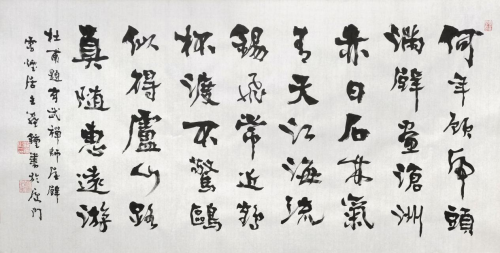 何年顧虎頭
滿壁畫滄洲
赤日石林氣
青天江海流
錫飛常近鶴
杯渡不驚鷗
似得盧山路
真隨惠遠游
杜甫題玄武禪師屋壁
書於